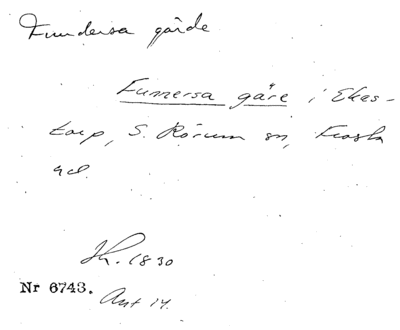 Fundersa gärde
Funnersa gåre i Ekas-
torp, S. Rörum sn, Frosta
hd.
1830
Nr 6743.
Ant 14.